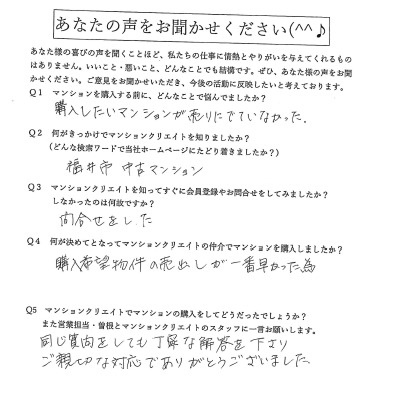 あなたの声をお聞かせください(^^♪
あなた様の喜びの声を聞くことほど、私たちの仕事に情熱とやりがいを与えてくれるもの
はありません。いいこと・悪いこと、どんなことでも結構です。ぜひ、あなた様の声をお聞
かせください。ご意見をお聞かせいただき、今後の活動に反映したいと考えております。
Q1 マンションを購入する前に、どんなことで悩んでましたか?
購入したいマンションが売りにでていなかった.
Q2 何がきっかけでマンションクリエイトを知りましたか?
(どんな検索ワードで当社ホームページにたどり着きましたか?)
福井市 中古マンション
Q3 マンションクリエイトを知ってすぐに会員登録やお問合せをしてみましたか?
しなかったのは何故ですか?
問合せをした
Q4 何が決めてとなってマンションクリエイトの仲介でマンションを購入しましたか?
購入希望物件の売出しが一番早かった為
Q5 マンションクリエイトでマンションの購入をしてどうだったでしょうか?
また営業担当・曽根とマンションクリエイトのスタッフに一言お願いします。
同じ質問をしても丁寧な解答を下さり
ご親切な対応でありがとうございました.